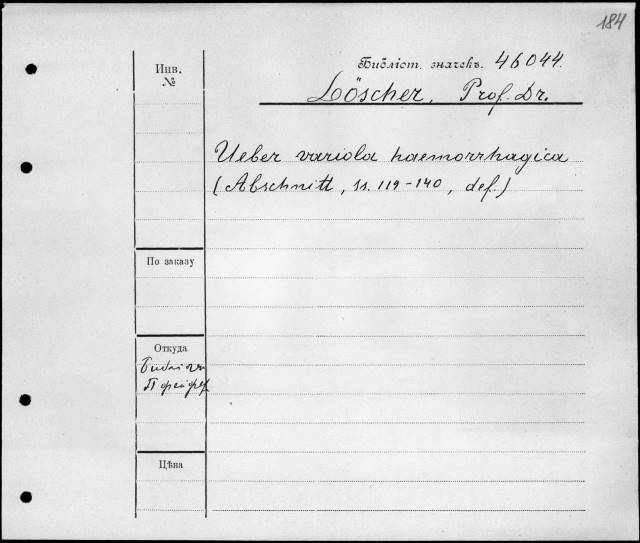 184
Инв.
№
Библіот. значекъ. 46044.
Löscher, Prof. Dr.
Ueber variola haemorrhagica
(Abschnitt, ss. 119-140, def.)
По заказу
Откуда
Пфейфер
Цѣна